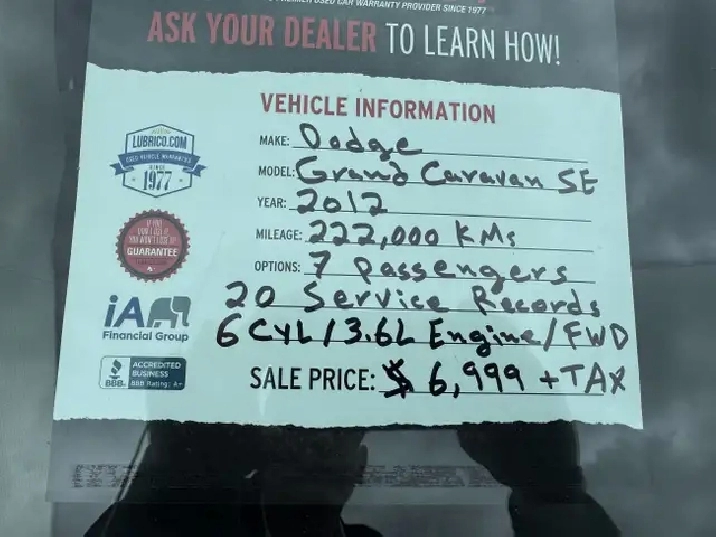 USED CAR WARRANTY PROVIDER SINCE 1977
ASK YOUR DEALER TO LEARN HOW!
VEHICLE INFORMATION
MAKE: Dodge
MODEL: Grand Caravan SE
YEAR: 2012
MILEAGE: 222,000 KMs
OPTIONS: 7 Passengers
20 Service Records
6 CYL / 3.6L Engine / FWD
SALE PRICE: $ 6,999 + TAX
LUBRICO.COM
USED VEHICLE WARRANTIES
SINCE
1977
GUARANTEE
iA
Financial Group
BBB
ACCREDITED
BUSINESS
BBB Rating: A+